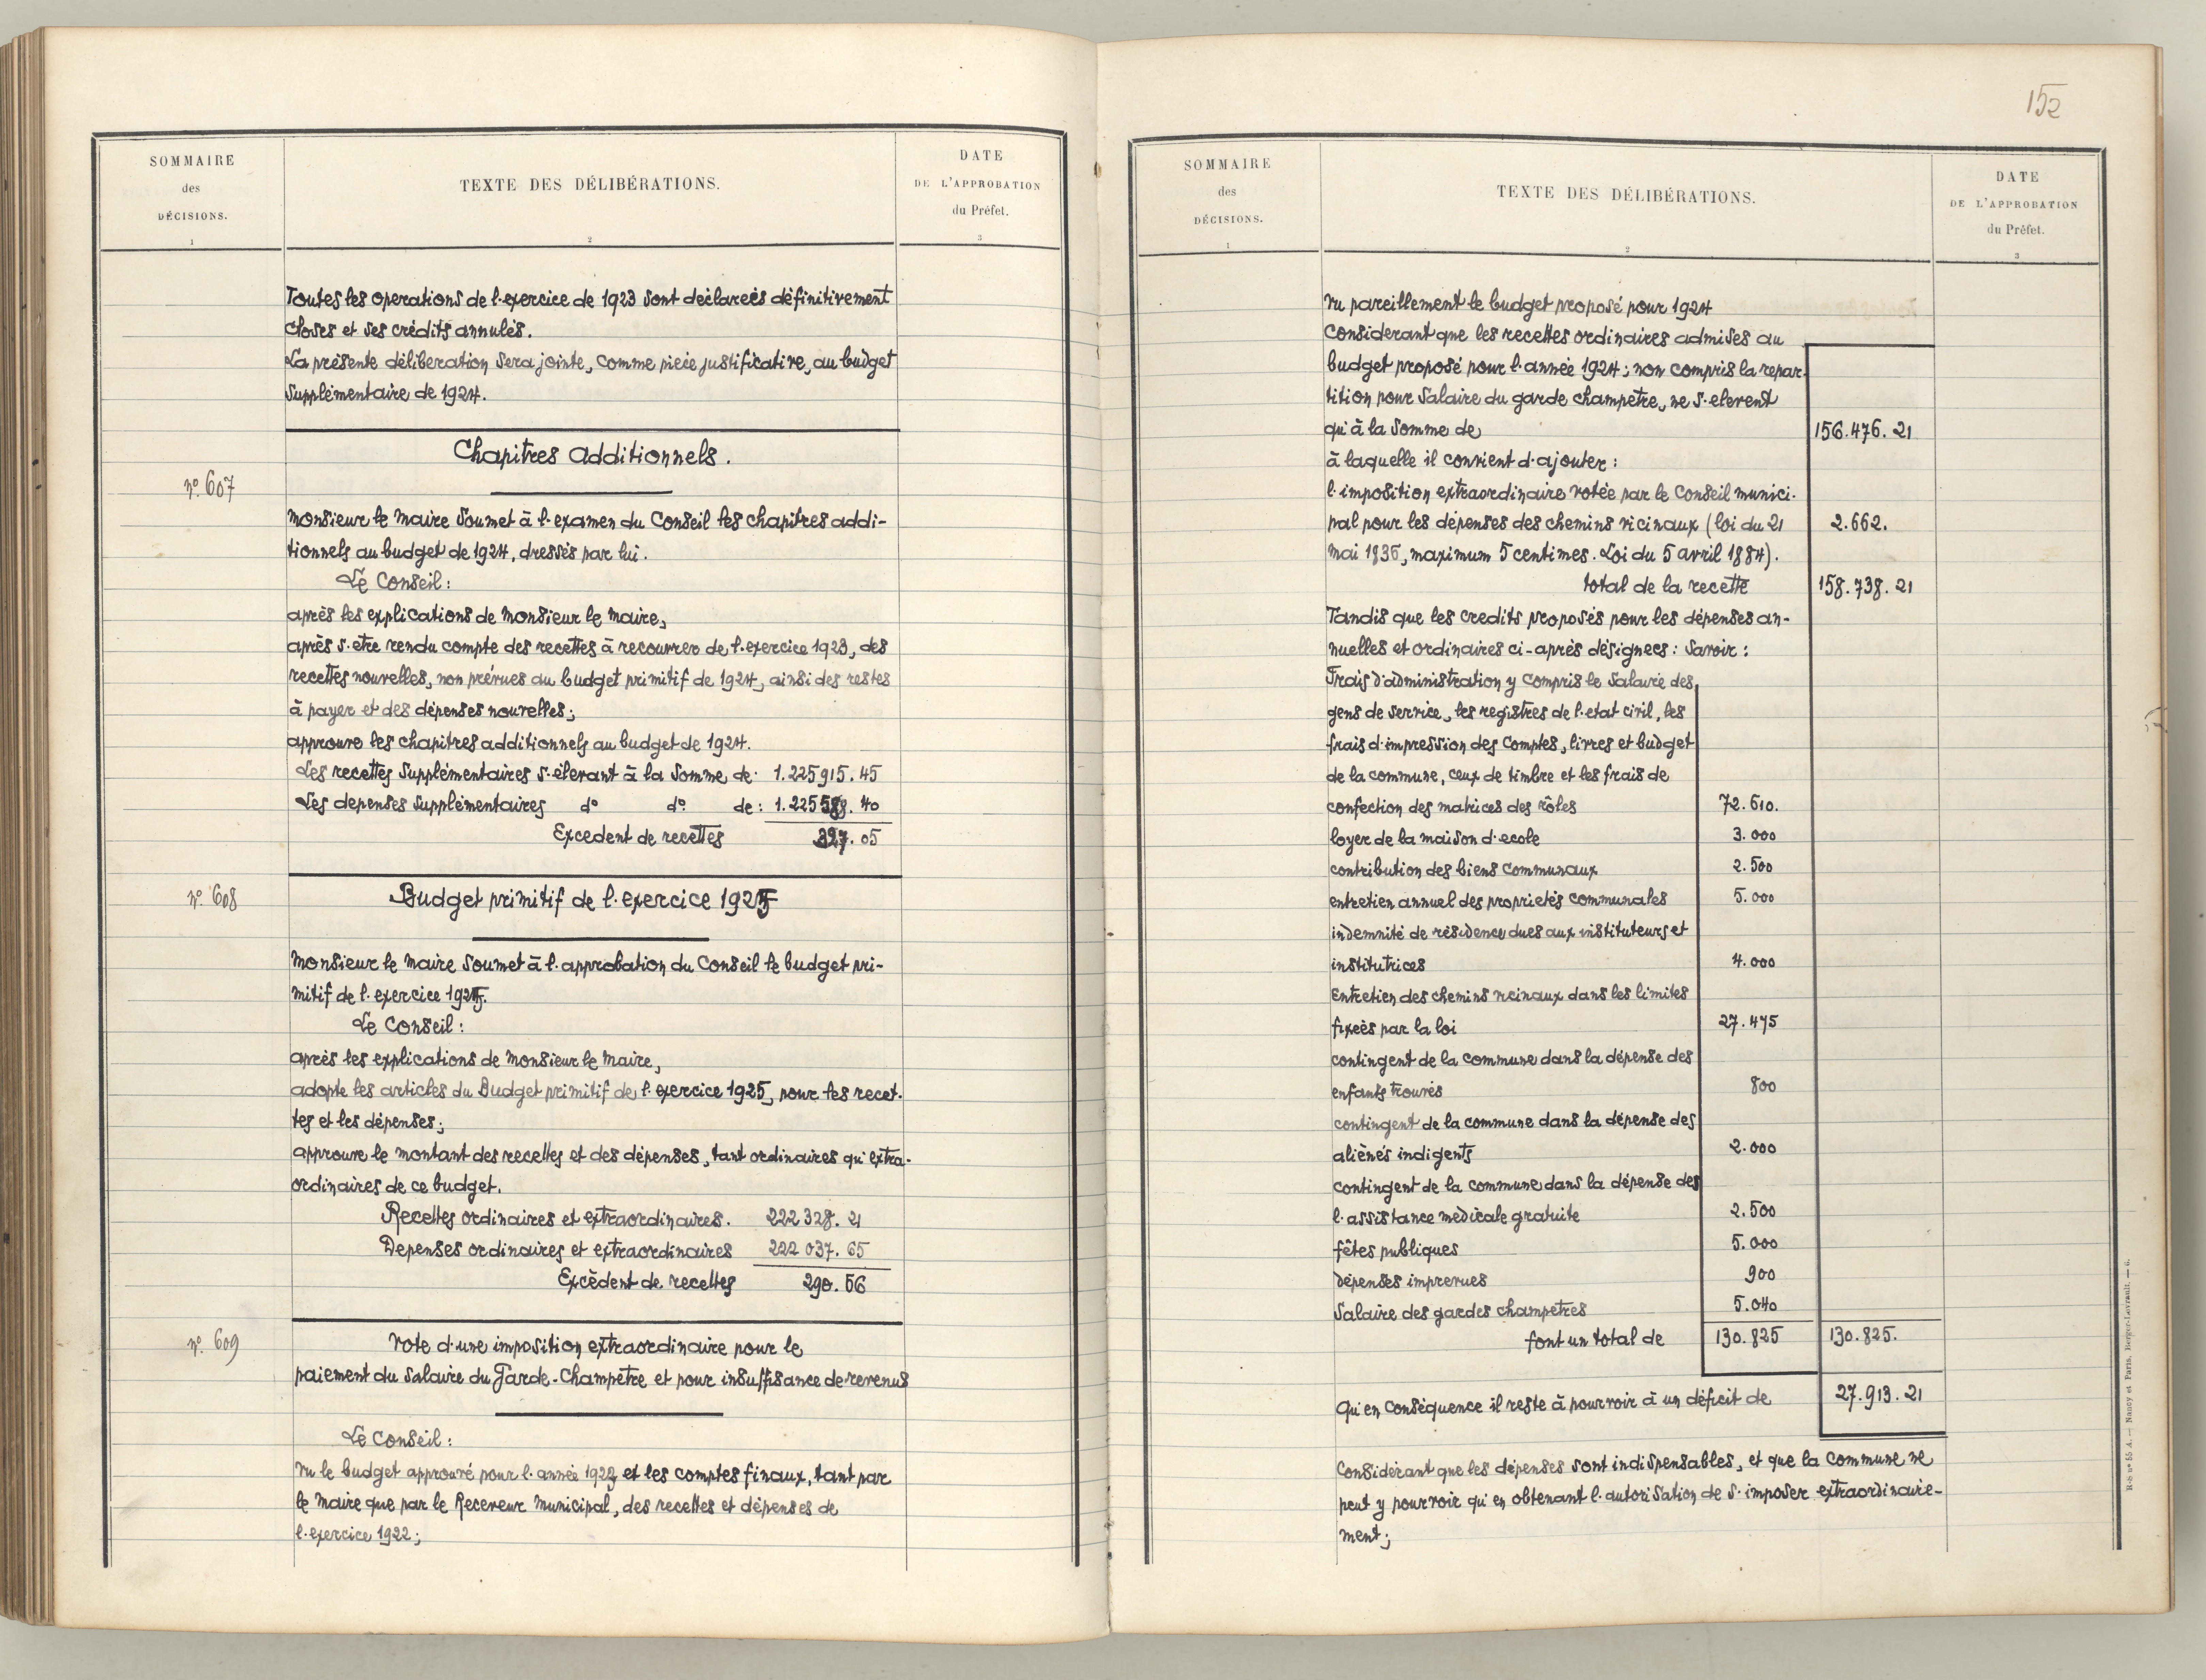 SOMMAIRE
des
DÉCISIONS.
1
TEXTE DES DÉLIBÉRATIONS.
2
DATE
DE L'APPROBATION
du Préfet.
3
Toutes les operations de l'exercice de 1923 sont déclarées définitivement
closes et ses crédits annulés.
La présente délibération sera jointe, comme pièce justificative, au budget
supplémentaire de 1924.
Chapitres additionnels.
nº 607
Monsieur le Maire soumet à l'examen du Conseil les chapitres addi-
tionnels au budget de 1924, dressés par lui.
Le Conseil :
après les explications de Monsieur le Maire,
après s'etre rendu compte des recettes à recouvrer de l'exercice 1923, des
recettes nouvelles, non prévues au budget primitif de 1924, ainsi des restes
à payer et des dépenses nouvelles ;
approuve les chapitres additionnels au budget de 1924.
Les recettes supplémentaires s'élevant à la somme de : 1.225915.45
Les depenses supplémentaires dº dº de : 1.225588.40
Excedent de recettes 327.05
nº 608
Budget primitif de l'exercice 1925
Monsieur le Maire soumet à l'approbation du Conseil le budget pri-
mitif de l'exercice 1925.
Le Conseil :
après les explications de Monsieur le Maire,
adopte les articles du Budget primitif de l'exercice 1925, pour les recet-
tes et les dépenses ;
approuve le montant des recettes et des dépenses, tant ordinaires qu'extra-
ordinaires de ce budget.
Recettes ordinaires et extraordinaires. 222 328. 21
Depenses ordinaires et extraordinaires 222 037. 65
Excèdent de recettes 290. 56
nº 609
Vote d'une imposition extraordinaire pour le
paiement du salaire du Garde-Champêtre et pour insuffisance de revenus
Le Conseil :
Vu le budget approuvé pour l'année 1923 et les comptes finaux, tant par
le Maire que par le Receveur Municipal, des recettes et dépenses de
l'exercice 1922 ;
152
SOMMAIRE
des
DÉCISIONS.
1
TEXTE DES DÉLIBÉRATIONS.
2
DATE
DE L'APPROBATION
du Préfet.
3
Vu pareillement le budget proposé pour 1924
Considerant que les recettes ordinaires admises au
budget proposé pour l'année 1924 ; non compris la repar-
tition pour salaire du garde champetre, ne s'elevent
qu'à la somme de 156.476.21
à laquelle il convient d'ajouter :
l'imposition extraordinaire votée par le Conseil munici-
pal pour les dépenses des chemins vicinaux (loi du 21 2.662.
Mai 1836, maximum 5 centimes. Loi du 5 avril 1884).
total de la recette 158.738.21
Tandis que les credits proposés pour les dépenses an-
nuelles et ordinaires ci-après désignees : Savoir :
Frais d'administration y compris le salaire des
gens de service, les registres de l'etat civil, les
frais d'impression des comptes, livres et budget
de la commune, ceux de timbre et les frais de
confection des matrices des rôles 72.610.
loyer de la maison d'ecole 3.000
contribution des biens communaux 2.500
entretien annuel des proprietés communales 5.000
indemnité de résidence dues aux instituteurs et
institutrices 4.000
Entretien des chemins vicinaux dans les limites
fixeés par la loi 27.475
contingent de la commune dans la dépense des
enfants trouvés 800
contingent de la commune dans la dépense des
aliénés indigents 2.000
contingent de la commune dans la dépense des
l'assistance médicale gratuite 2.500
fêtes publiques 5.000
dépenses imprevues 900
Salaire des gardes champetres 5.040
font un total de 130.825 130.825.
Qu'en conséquence il reste à pourvoir à un déficit de 27.913.21
Considérant que les dépenses sont indispensables, et que la commune ne
peut y pourvoir qu'en obtenant l'autorisation de s'imposer extraordinaire-
ment ;
R-S nº 55 A. — Nancy et Paris, Berger-Levrault. — 6.